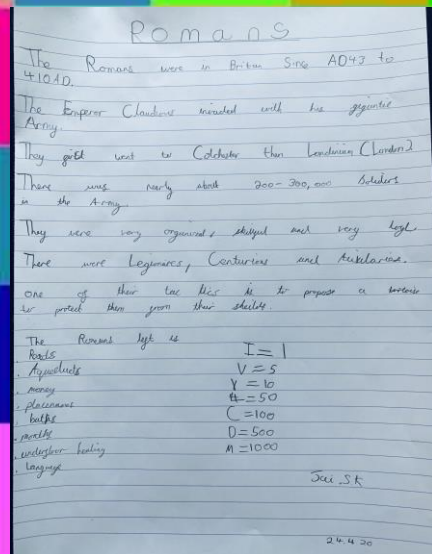 Romans
The Romans were in Britian Since AD43 to
410AD.
The Emperor Claudius invaded with his gigantic
Army.
They went to Colchester then Londinium (London)
There was nearly about 200-300,000 Soliders
in the Army.
They were very organised, skillful and very loyal.
There were Legionares, Centurions and
one of their is to propose a
to protect them from their shields.
The Romans left us
Roads
. Aqueducts
. money
. placenames
. baths
. months
. underfloor heating
. language
I = 1
V = 5
X = 10
L = 50
C = 100
D = 500
M = 1000
Jai Sk
24.4.20